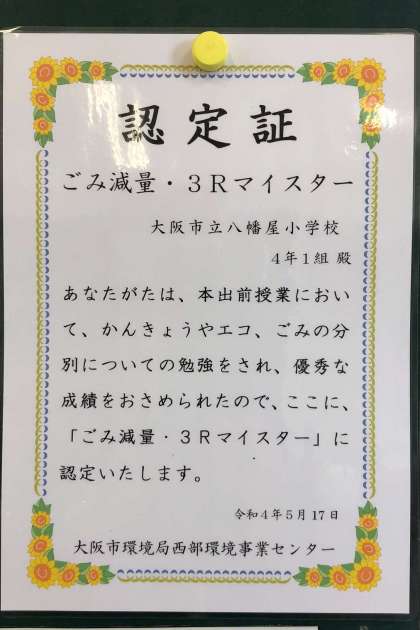 認定証
ごみ減量・３Ｒマイスター
大阪市立八幡屋小学校
４年１組 殿
あなたがたは、本出前授業におい
て、かんきょうやエコ、ごみの分
別についての勉強をされ、優秀な
成績をおさめられたので、ここに、
「ごみ減量・３Ｒマイスター」に
認定いたします。
令和４年５月17日
大阪市環境局西部環境事業センター